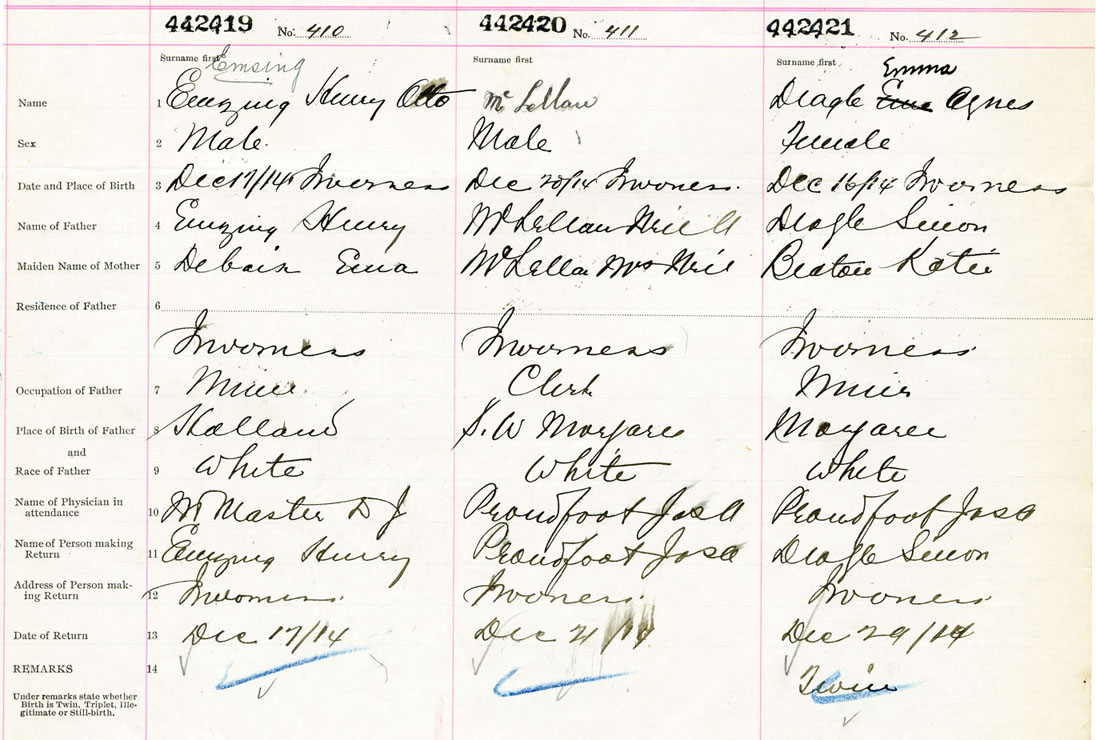 442419 No. 410 442420 No. 411 442421 No. 412
Surname first Emsing Surname first Surname first Emma
Name 1 Emzing Henry Otto McLellan Deagle Agnes
Sex 2 Male. Male Female
Date and Place of Birth 3 Dec 17/14 Inverness Dec 20/14 Inverness. Dec 16/14 Inverness
Name of Father 4 Emzing Henry McLellan Neil A Deagle Simon
Maiden Name of Mother 5 Debaix Ema McLella Mrs Neil Beaton Katie
Residence of Father 6
Inverness Inverness Inverness
Occupation of Father 7 Miner Clerk Miner
Place of Birth of Father 8 Holland S. W Margaree Margaree
and
Race of Father 9 White White White
Name of Physician in
attendance 10 McMaster D J Proudfoot Jas A Proudfoot Jas A
Name of Person making
Return 11 Emzing Henry Proudfoot Jas A Deagle Simon
Address of Person mak-
ing Return 12 Inverness. Inverness. Inverness.
Date of Return 13 Dec 17/14 Dec 21/14 Dec 29/14
REMARKS 14 Twin
Under remarks state whether
Birth is Twin, Triplet, Ille-
gitimate or Still-birth.